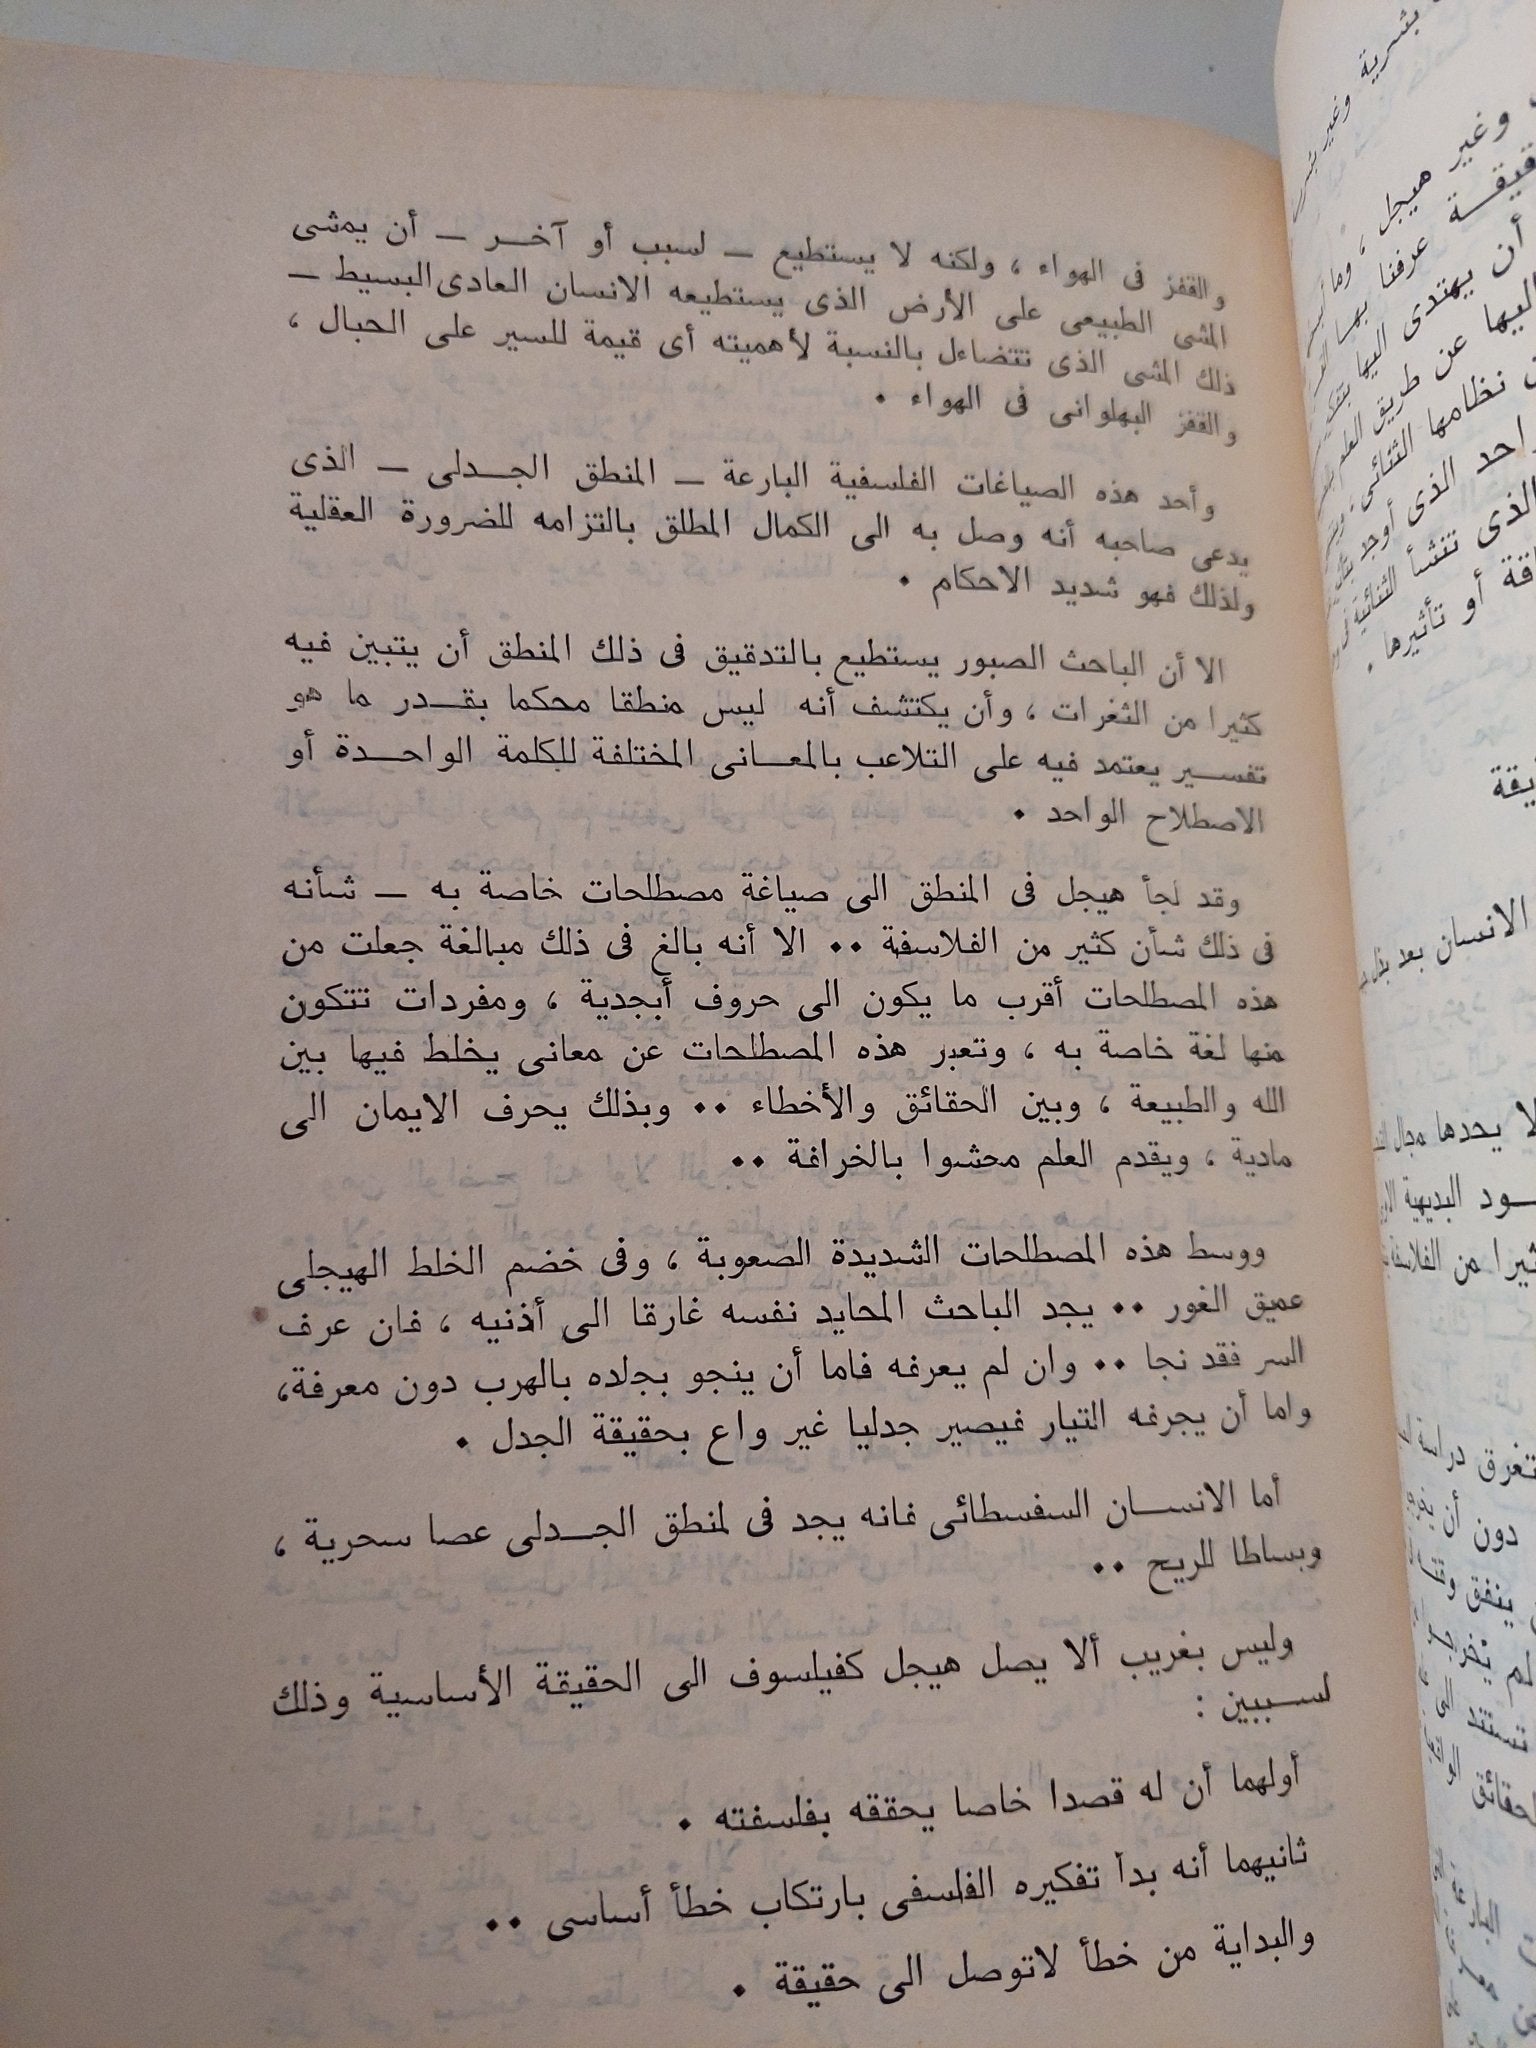 والقفز فى الهواء ، ولكنه لا يستطيع — لسبب أو آخـــر — أن يمشى
المشى الطبيعى على الأرض الذى يستطيعه الانسان العادى البسيط —
ذلك المشى الذى تتضاءل بالنسبة لأهميته أى قيمة للسير على الحبال ،
والقفز البهلوانى فى الهواء .
وأحد هذه الصياغات الفلسفية البارعة — المنطق الجـــدلى — الذى
يدعى صاحبه أنه وصل به الى الكمال المطلق بالتزامه للضرورة العقلية
ولذلك فهو شديد الاحكام .
الا أن الباحث الصبور يستطيع بالتدقيق فى ذلك المنطق أن يتبين فيه
كثيرا من الثغرات ، وأن يكتشف أنه ليس منطقا محكما بقـــدر ما هو
تفســـير يعتمد فيه على التلاعب بالمعـــانى المختلفة للكلمة الواحـــدة أو
الاصطلاح الواحد .
وقد لجأ هيجل فى المنطق الى صياغة مصطلحات خاصة به — شأنه
فى ذلك شأن كثير من الفلاسفة .. الا أنه بالغ فى ذلك مبالغة جعلت من
هذه المصطلحات أقرب ما يكون الى حروف أبجدية ، ومفردات تتكون
منها لغة خاصة به ، وتعبر هذه المصطلحات عن معانى يخلط فيها بين
الله والطبيعة ، وبين الحقائق والأخطاء .. وبذلك يحرف الايمان الى
مادية ، ويقدم العلم محشوا بالخرافة ..
ووسط هذه المصطلحات الشديدة الصعوبة ، وفى خضم الخلط الهيجلى
عميق الغور .. يجد الباحث المحايد نفسه غارقا الى أذنيه ، فان عرف
السر فقد نجا .. وان لم يعرفه فاما أن ينجو بجلده بالهرب دون معرفة،
واما أن يجرفه التيار فيصير جدليا غير واع بحقيقة الجدل .
أما الانســـان السفسطائى فانه يجد فى لمنطق الجـــدلى عصا سحرية ،
وبساطا للريح ..
وليس بغريب ألا يصل هيجل كفيلسوف الى الحقيقة الأساسية وذلك
لســـببين :
أولهما أن له قصدا خاصا يحققه بفلسفته .
ثانيهما أنه بدأ تفكيره الفلسفى بارتكاب خطأ أساسى ..
والبداية من خطأ لاتوصل الى حقيقة .
بشرية وغير
وغير هيجل ، وما
عرفنا بها
أن يهتدى اليها
اليها عن طريق العلم
نظامها الثنائى
الذى أوجد
الذى تنشأ الثنائية فى
أو تأثيرها .
الانسان بعد
لا يحدها مجال
البديهية
من الفلاسفة
دراسة
دون أن
ينفق
لم
تستند الى